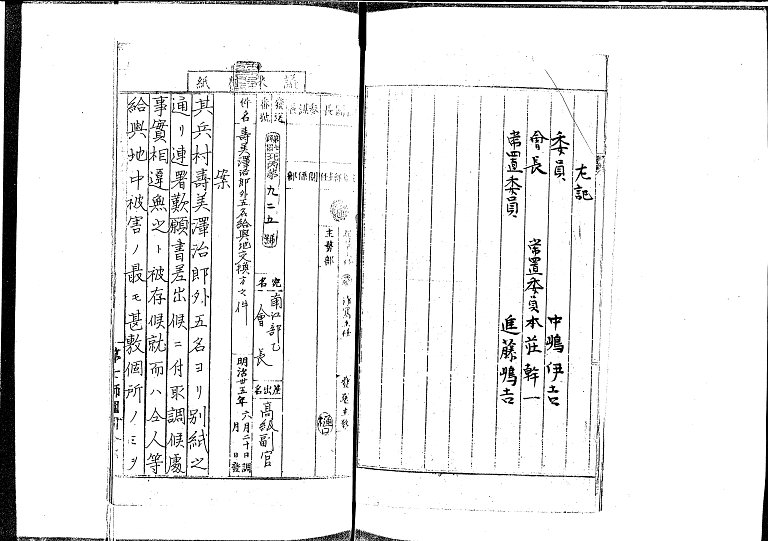 左記
委員　中嶋伊吉
會長　常置委員本荘幹一
常置委員　進藤鳴吉
主勢部
九二五號
宛名　會長
差出名　高級副官
件名　壽美澤治郎外五名給與地交換方之件
明治卅五年六月二十日調
月　日發
案
其兵村壽美澤治郎外五名ヨリ別紙之
通リ連署歎願書差出候ニ付取調候處
事實相違無之ト被存候就而ハ仝人等
給與地中被害ノ最モ甚敷個所ノミヲ